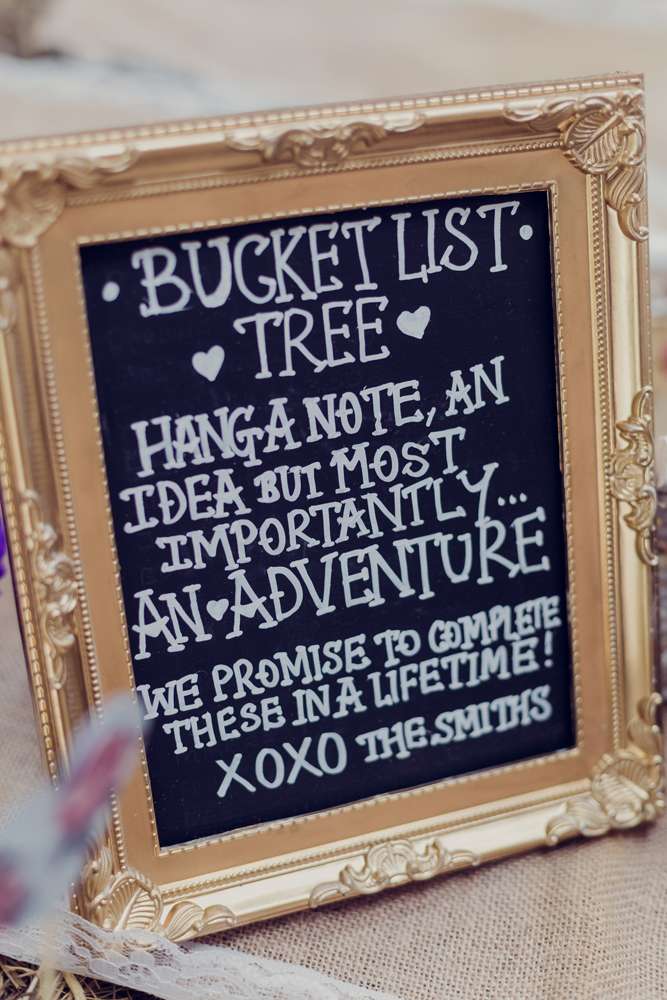 • BUCKET LIST •
♥ TREE ♥
HANG A NOTE, AN
IDEA BUT MOST
IMPORTANTLY...
AN ♥ ADVENTURE
WE PROMISE TO COMPLETE
THESE IN A LIFETIME!
XOXO THE SMITHS